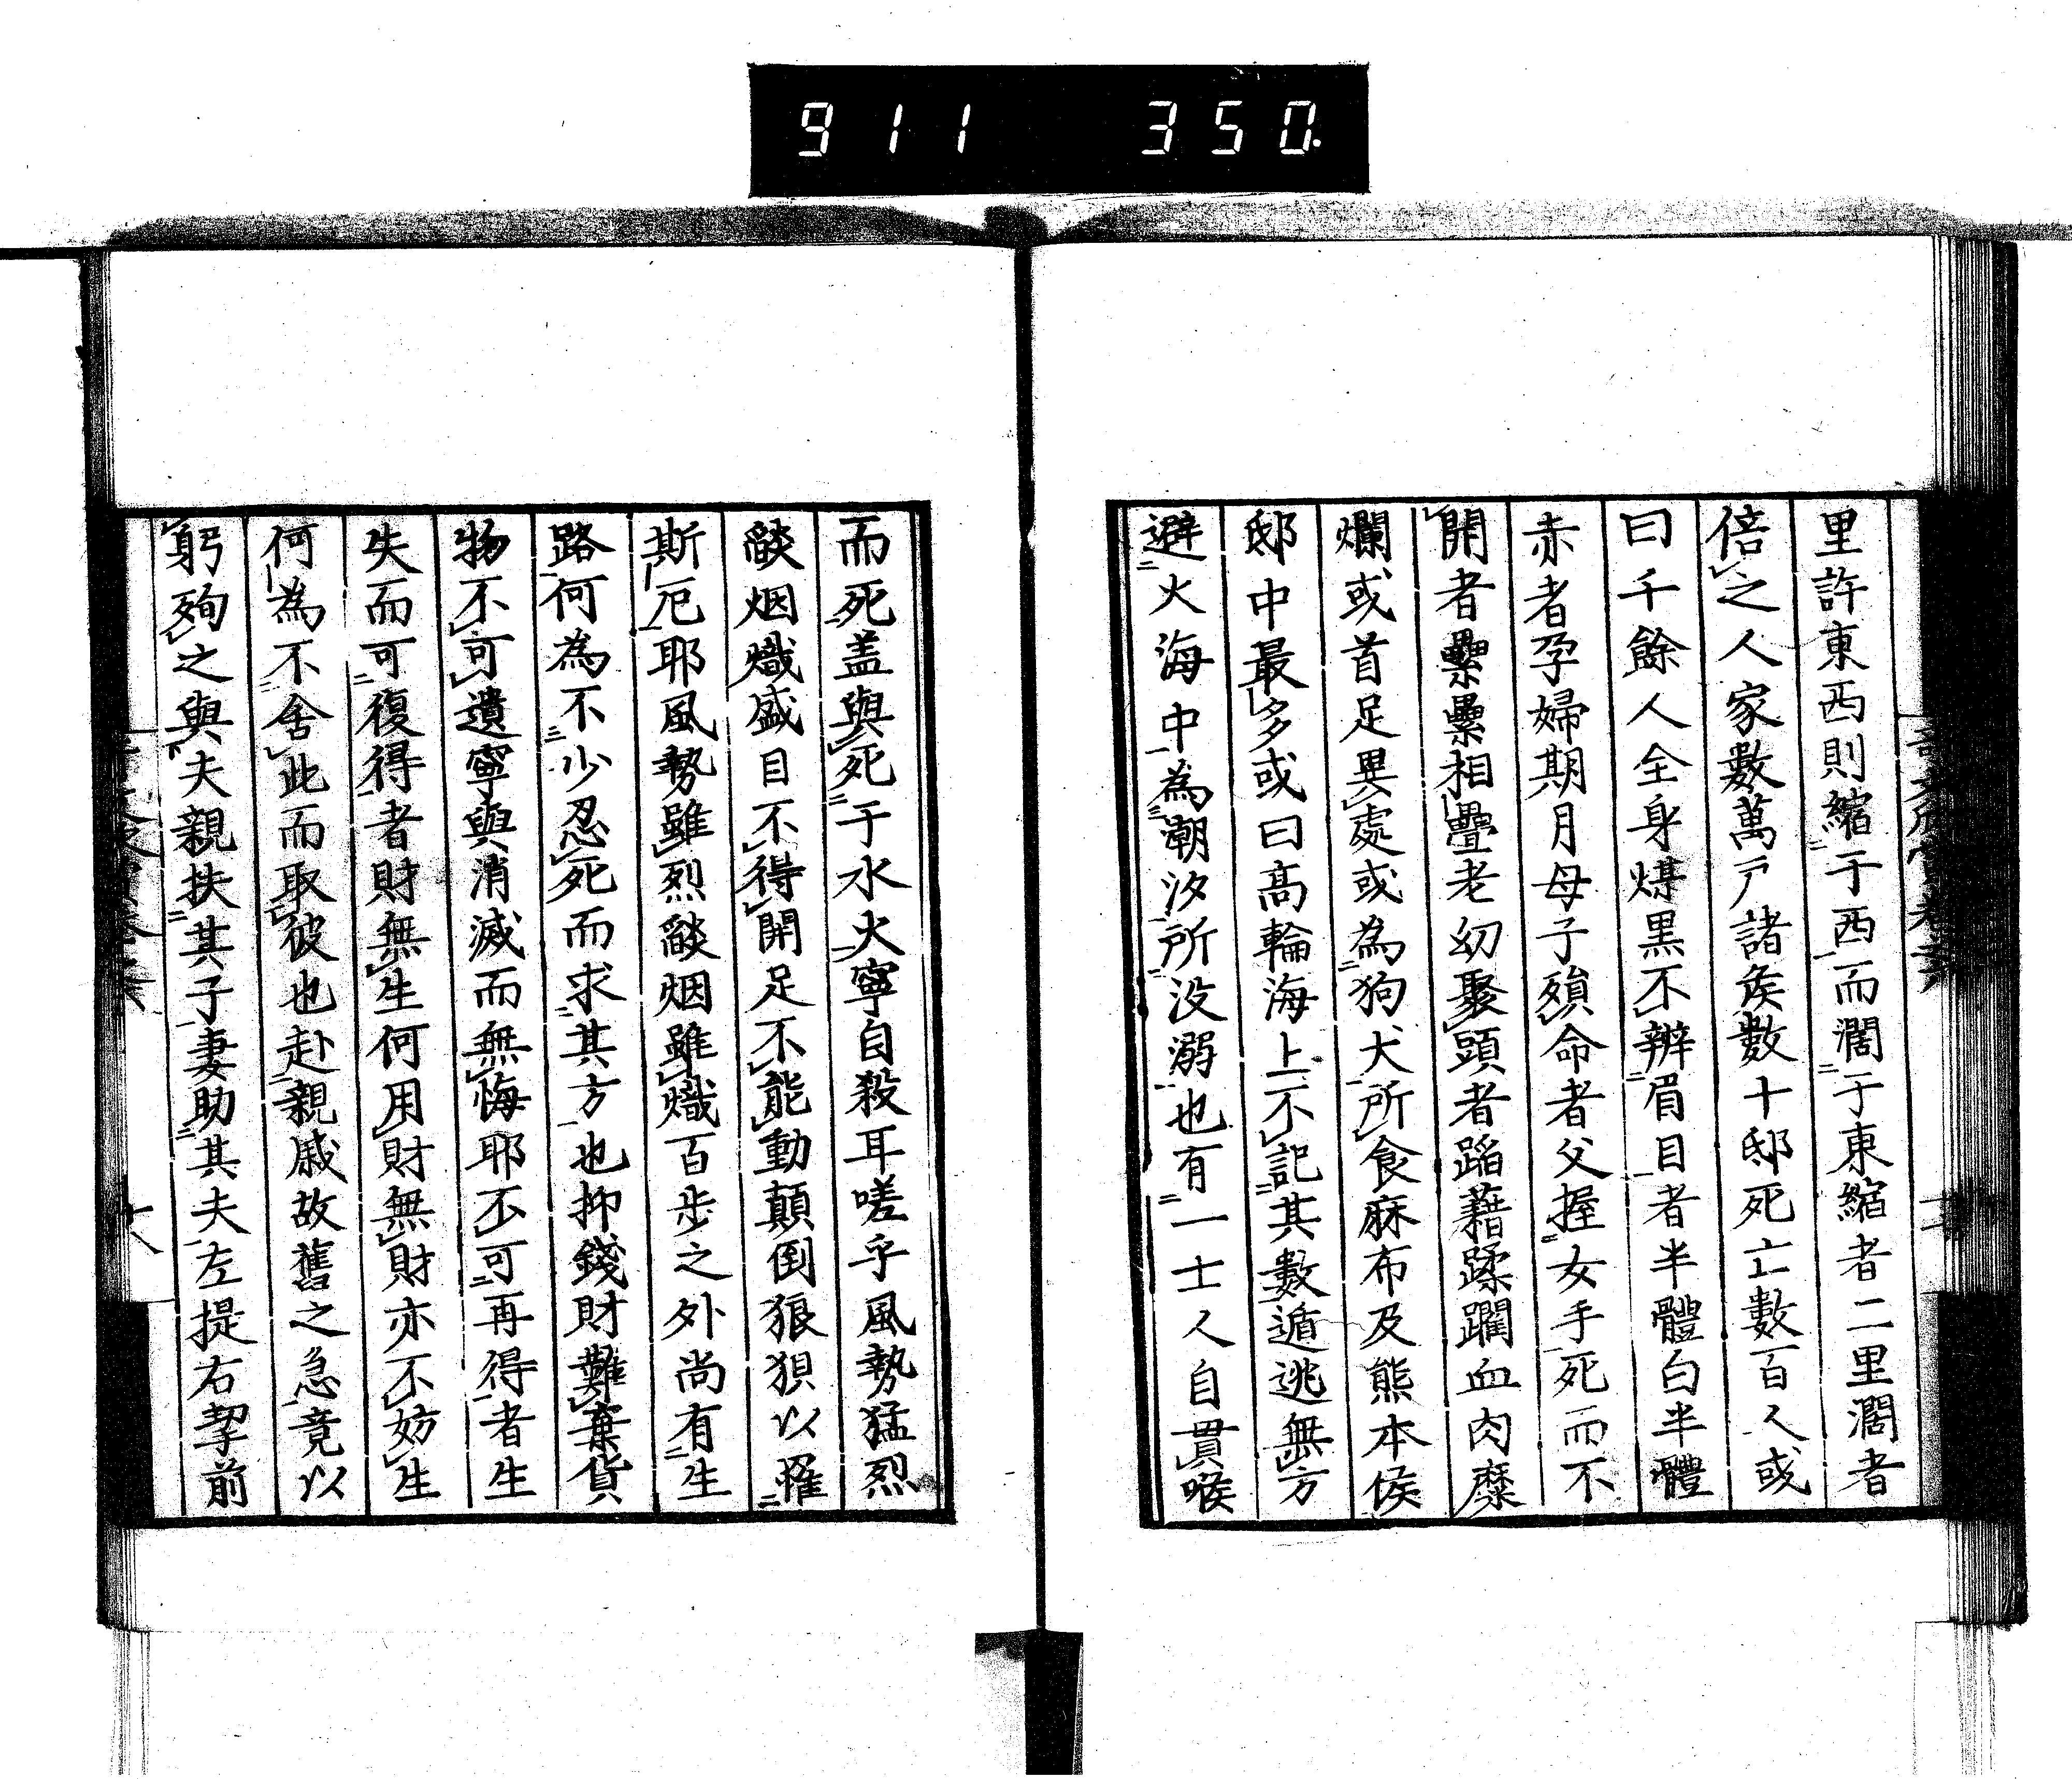 911 350.
里許東西則縮于西而濶于東縮者二里濶者
倍之人家數萬戸諸矦數十邸死亡數百人或
曰千餘人全身煤黒不辨眉目者半體白半體
赤者孕婦期月母子殞命者父握女手死而不
開者纍纍相疊老幼聚頭者蹈藉蹂躙血肉糜
爛或首足異處或為狗犬所食麻布及熊本侯
邸中最多或曰高輪海上不記其數遁逃無方
避火海中為潮汐所没溺也有一士人自貫喉
而死盖與死于水火寧自殺耳嗟乎風勢猛烈
燄烟熾盛目不得開足不能動顛倒狼狽以罹
斯厄耶風勢雖烈燄烟雖熾百步之外尚有生
路何為不少忍死而求其方也抑錢財難棄貨
物不可遺寧與消滅而無悔耶不可再得者生
失而可復得者財無生何用財無財亦不妨生
何為不舍此而取彼也赴親戚故舊之急竟以
躬殉之與夫親扶其子妻助其夫左提右挈前